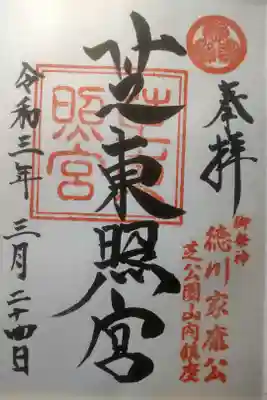 奉拝
御祭神
徳川家康公
芝公園山内鎮座
芝東照宮
令和三年 三月 二十四日